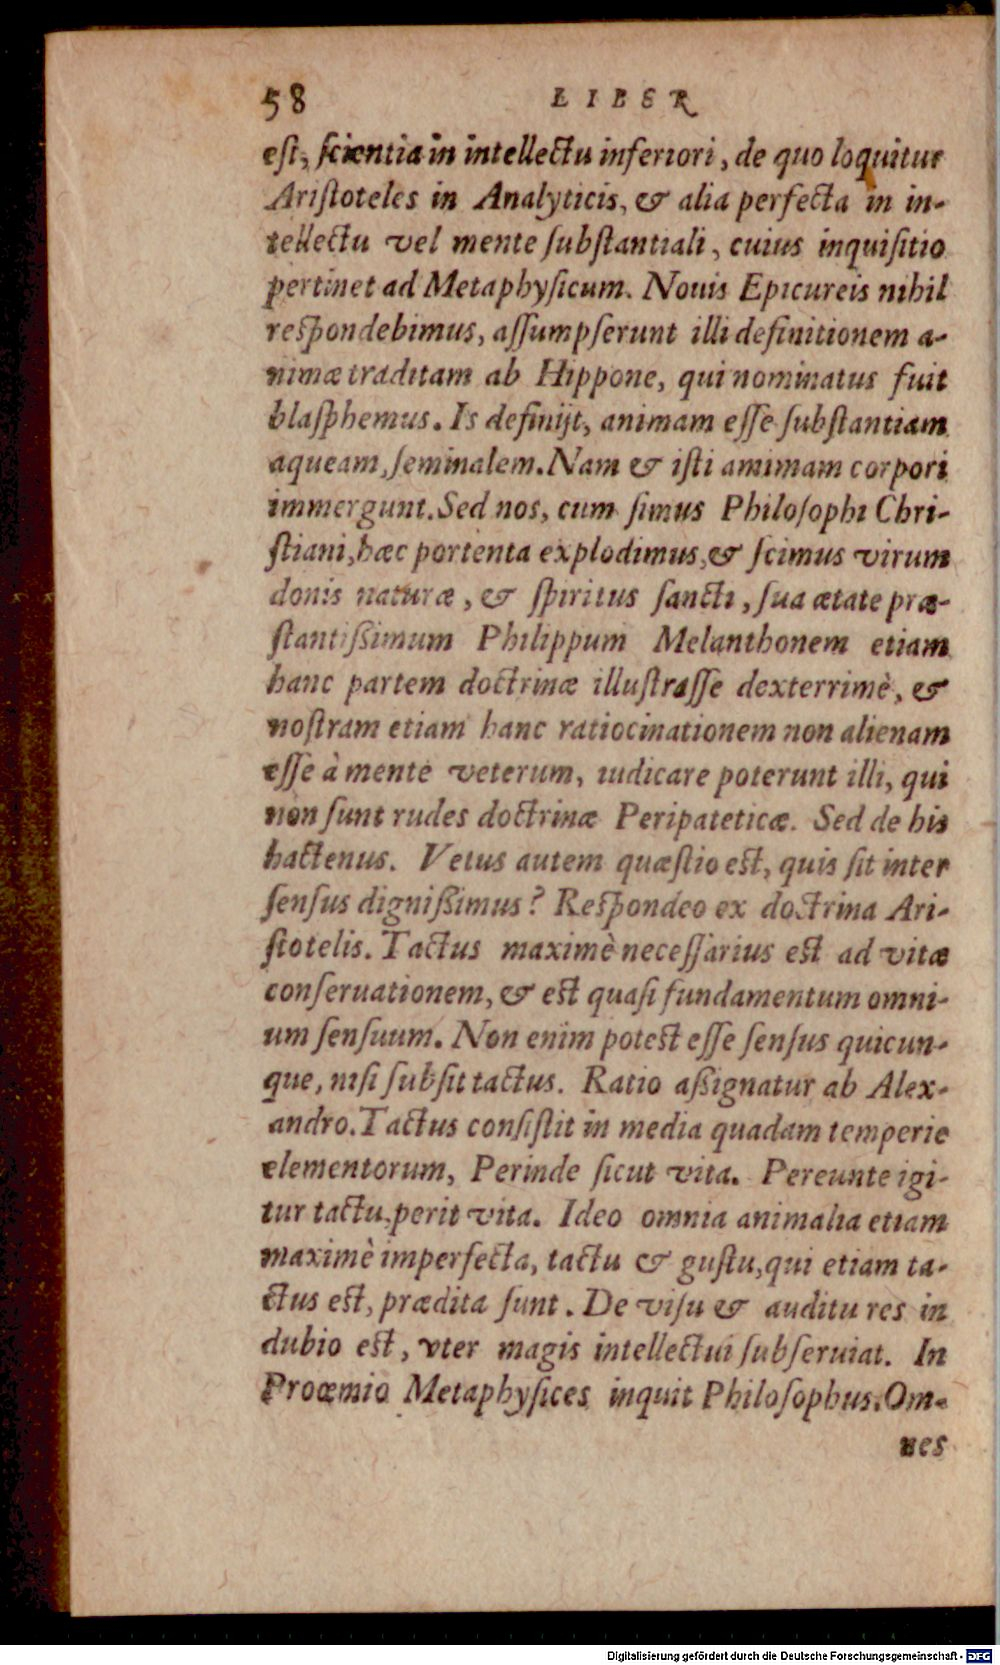 58 LIBER
est, scientia in intellectu inferiori, de quo loquitur
Aristoteles in Analyticis, & alia perfecta in in-
tellectu vel mente substantiali, cuius inquisitio
pertinet ad Metaphysicum. Nouis Epicureis nihil
respondebimus, assumpserunt illi definitionem a-
nimæ traditam ab Hippone, qui nominatus fuit
blasphemus. Is definijt, animam esse substantiam
aqueam, seminalem. Nam & isti amimam corpori
immergunt. Sed nos, cum simus Philosophi Chri-
stiani, hæc portenta explodimus, & scimus virum
donis naturæ, & spiritus sancti, sua ætate præ-
stantißimum Philippum Melanthonem etiam
hanc partem doctrinæ illustrasse dexterrimè, &
nostram etiam hanc ratiocinationem non alienam
esse à mente veterum, iudicare poterunt illi, qui
non sunt rudes doctrinæ Peripateticæ. Sed de his
hactenus. Vetus autem quæstio est, quis sit inter
sensus dignißimus? Respondeo ex doctrina Ari-
stotelis. Tactus maximè necessarius est ad vitæ
conseruationem, & est quasi fundamentum omni-
um sensuum. Non enim potest esse sensus quicun-
que, nisi subsit tactus. Ratio aßignatur ab Alex-
andro. Tactus consistit in media quadam temperie
elementorum, Perinde sicut vita. Pereunte igi-
tur tactu, perit vita. Ideo omnia animalia etiam
maximè imperfecta, tactu & gustu, qui etiam ta-
ctus est, prædita sunt. De visu & auditu res in
dubio est, vter magis intellectui subseruiat. In
Proæmio Metaphysices inquit Philosophus. Om-
nes
Digitalisierung gefördert durch die Deutsche Forschungsgemeinschaft - DFG